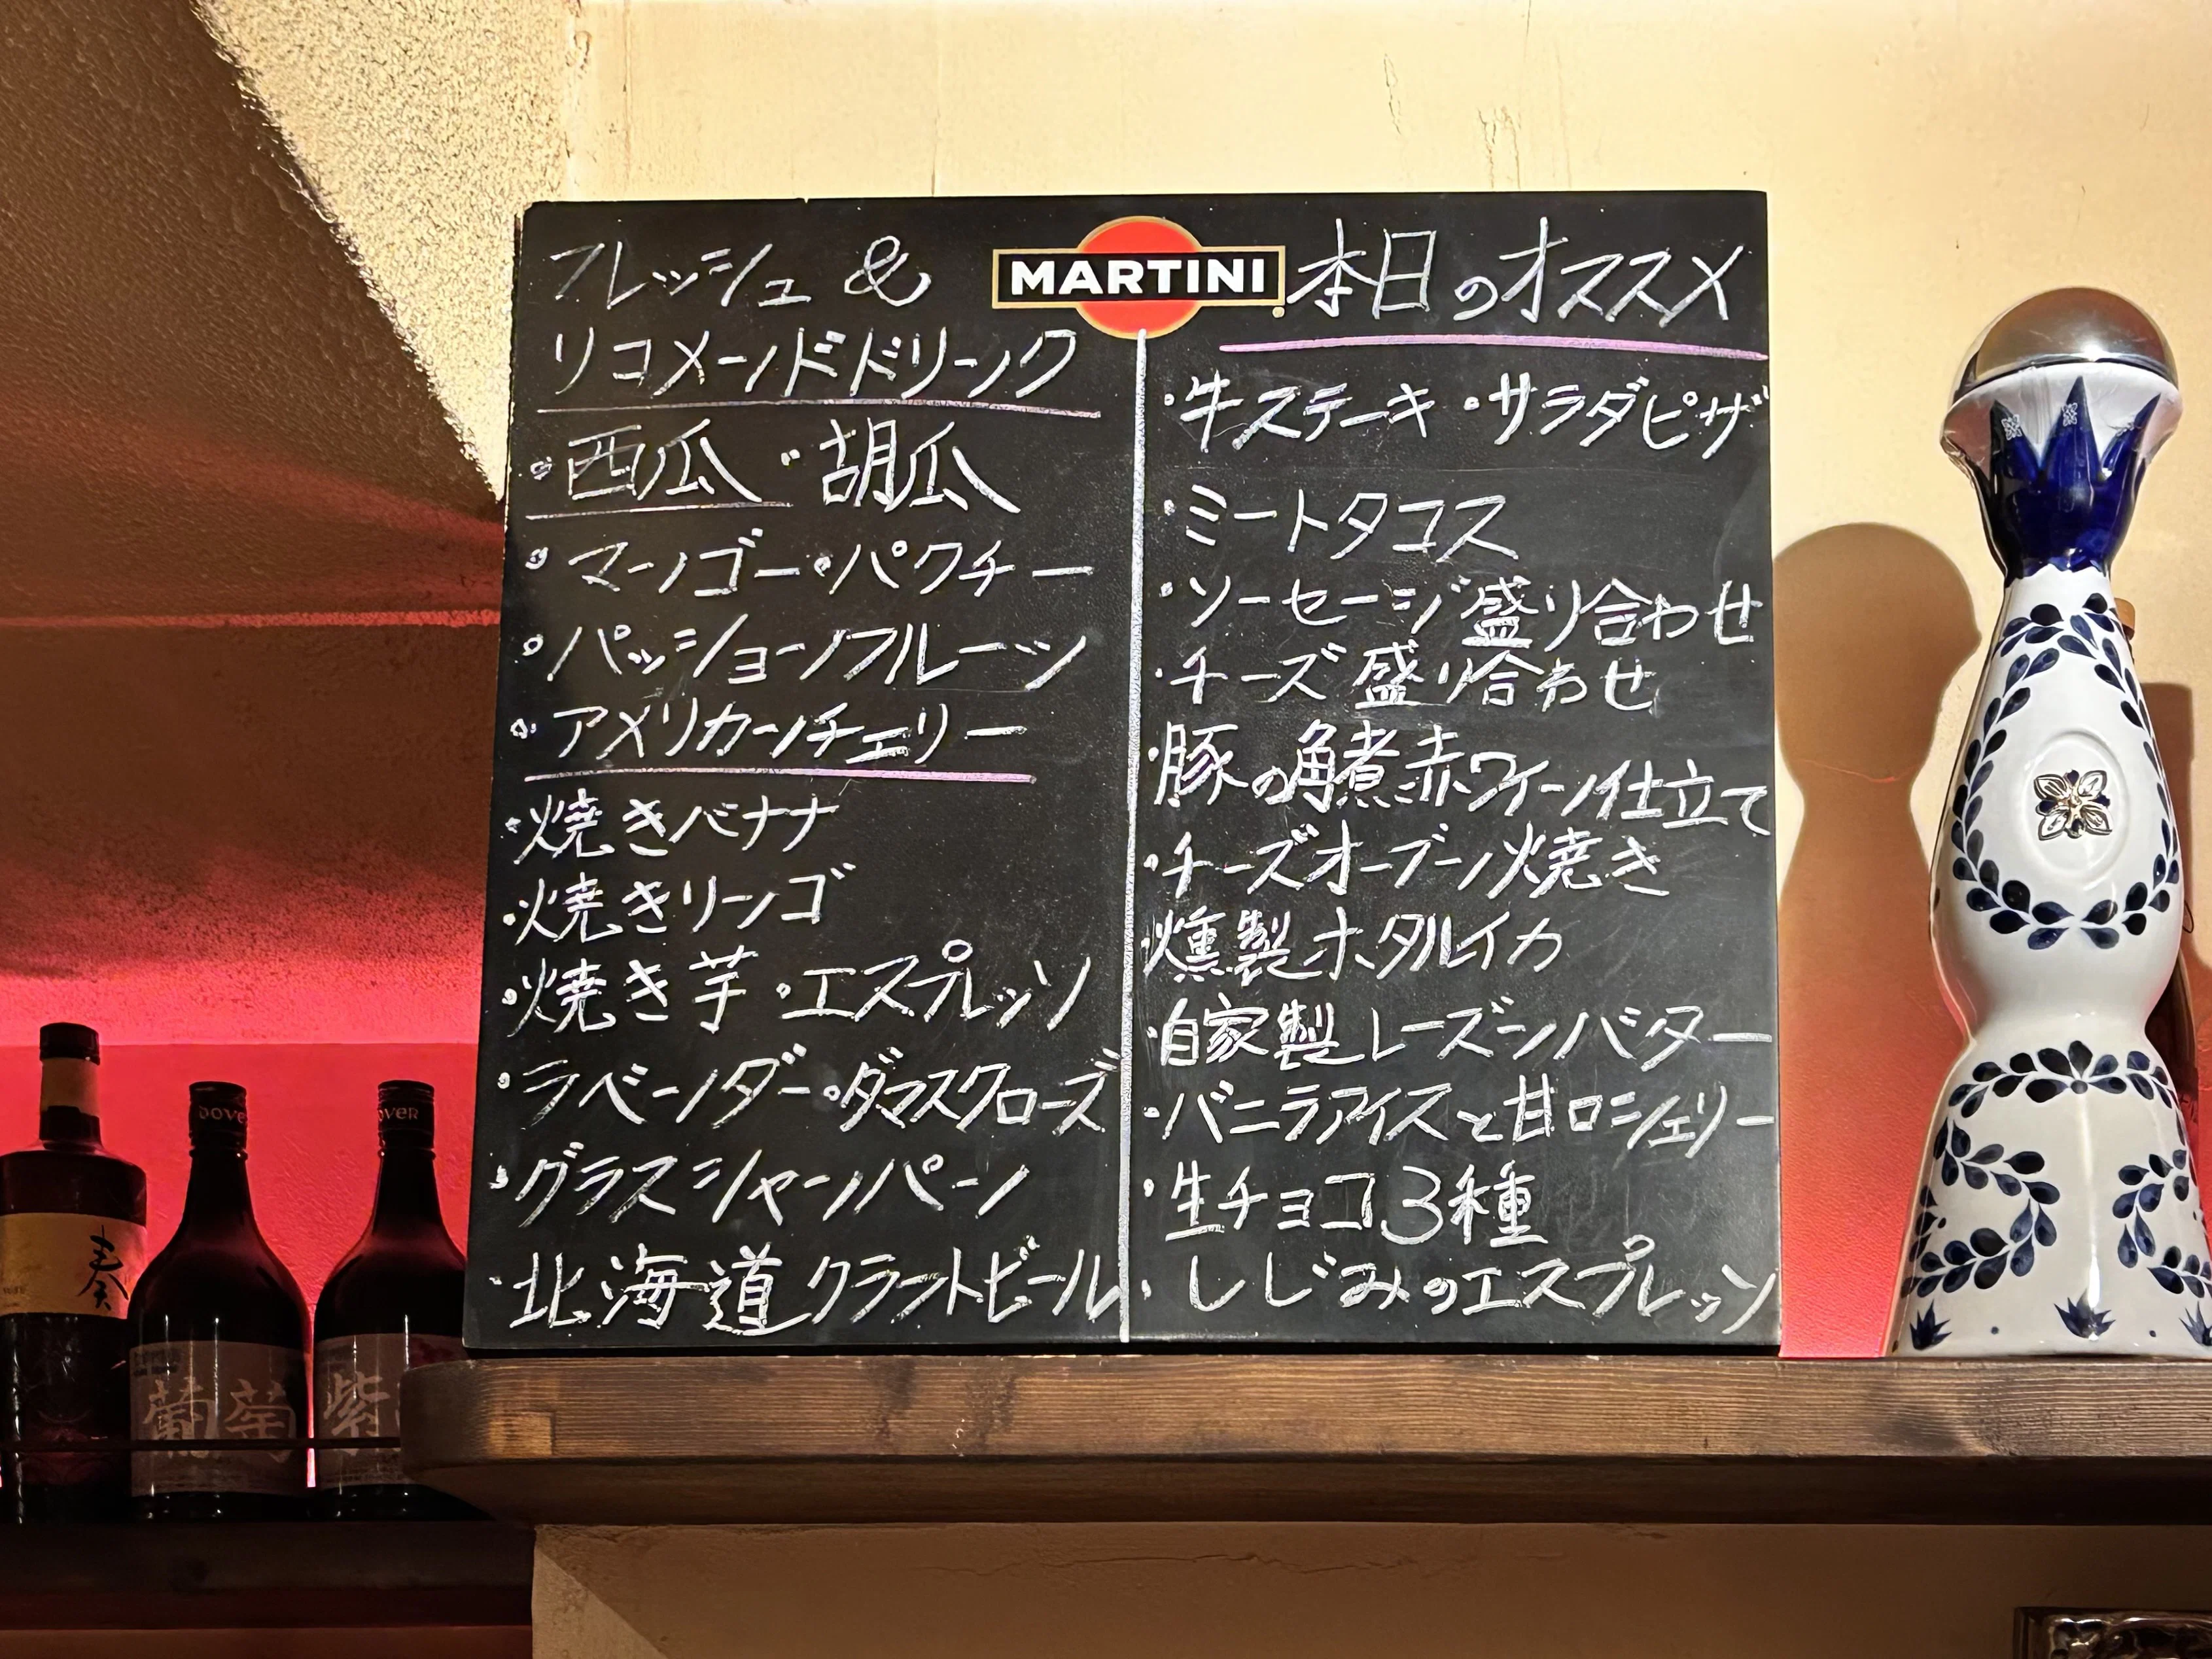 フレッシュ &
リコメンドドリンク
・西瓜 ・胡瓜
・マンゴー・パクチー
・パッションフルーツ
・アメリカンチェリー
・焼きバナナ
・焼きリンゴ
・焼き芋・エスプレッソ
・ラベンダー・ダマスクローズ
・グラスシャンパーン
・北海道クラフトビール
MARTINI
本日のオススメ
・牛ステーキ ・サラダピザ
・ミートタコス
・ソーセージ盛り合わせ
・チーズ盛り合わせ
・豚の角煮赤ワイン仕立て
・チーズオーブン焼き
・燻製ホタルイカ
・自家製レーズンバター
・バニラアイスと甘口シェリー
・生チョコ3種
・しじみのエスプレッソ
奏
DOVER
葡萄
OVER
紫